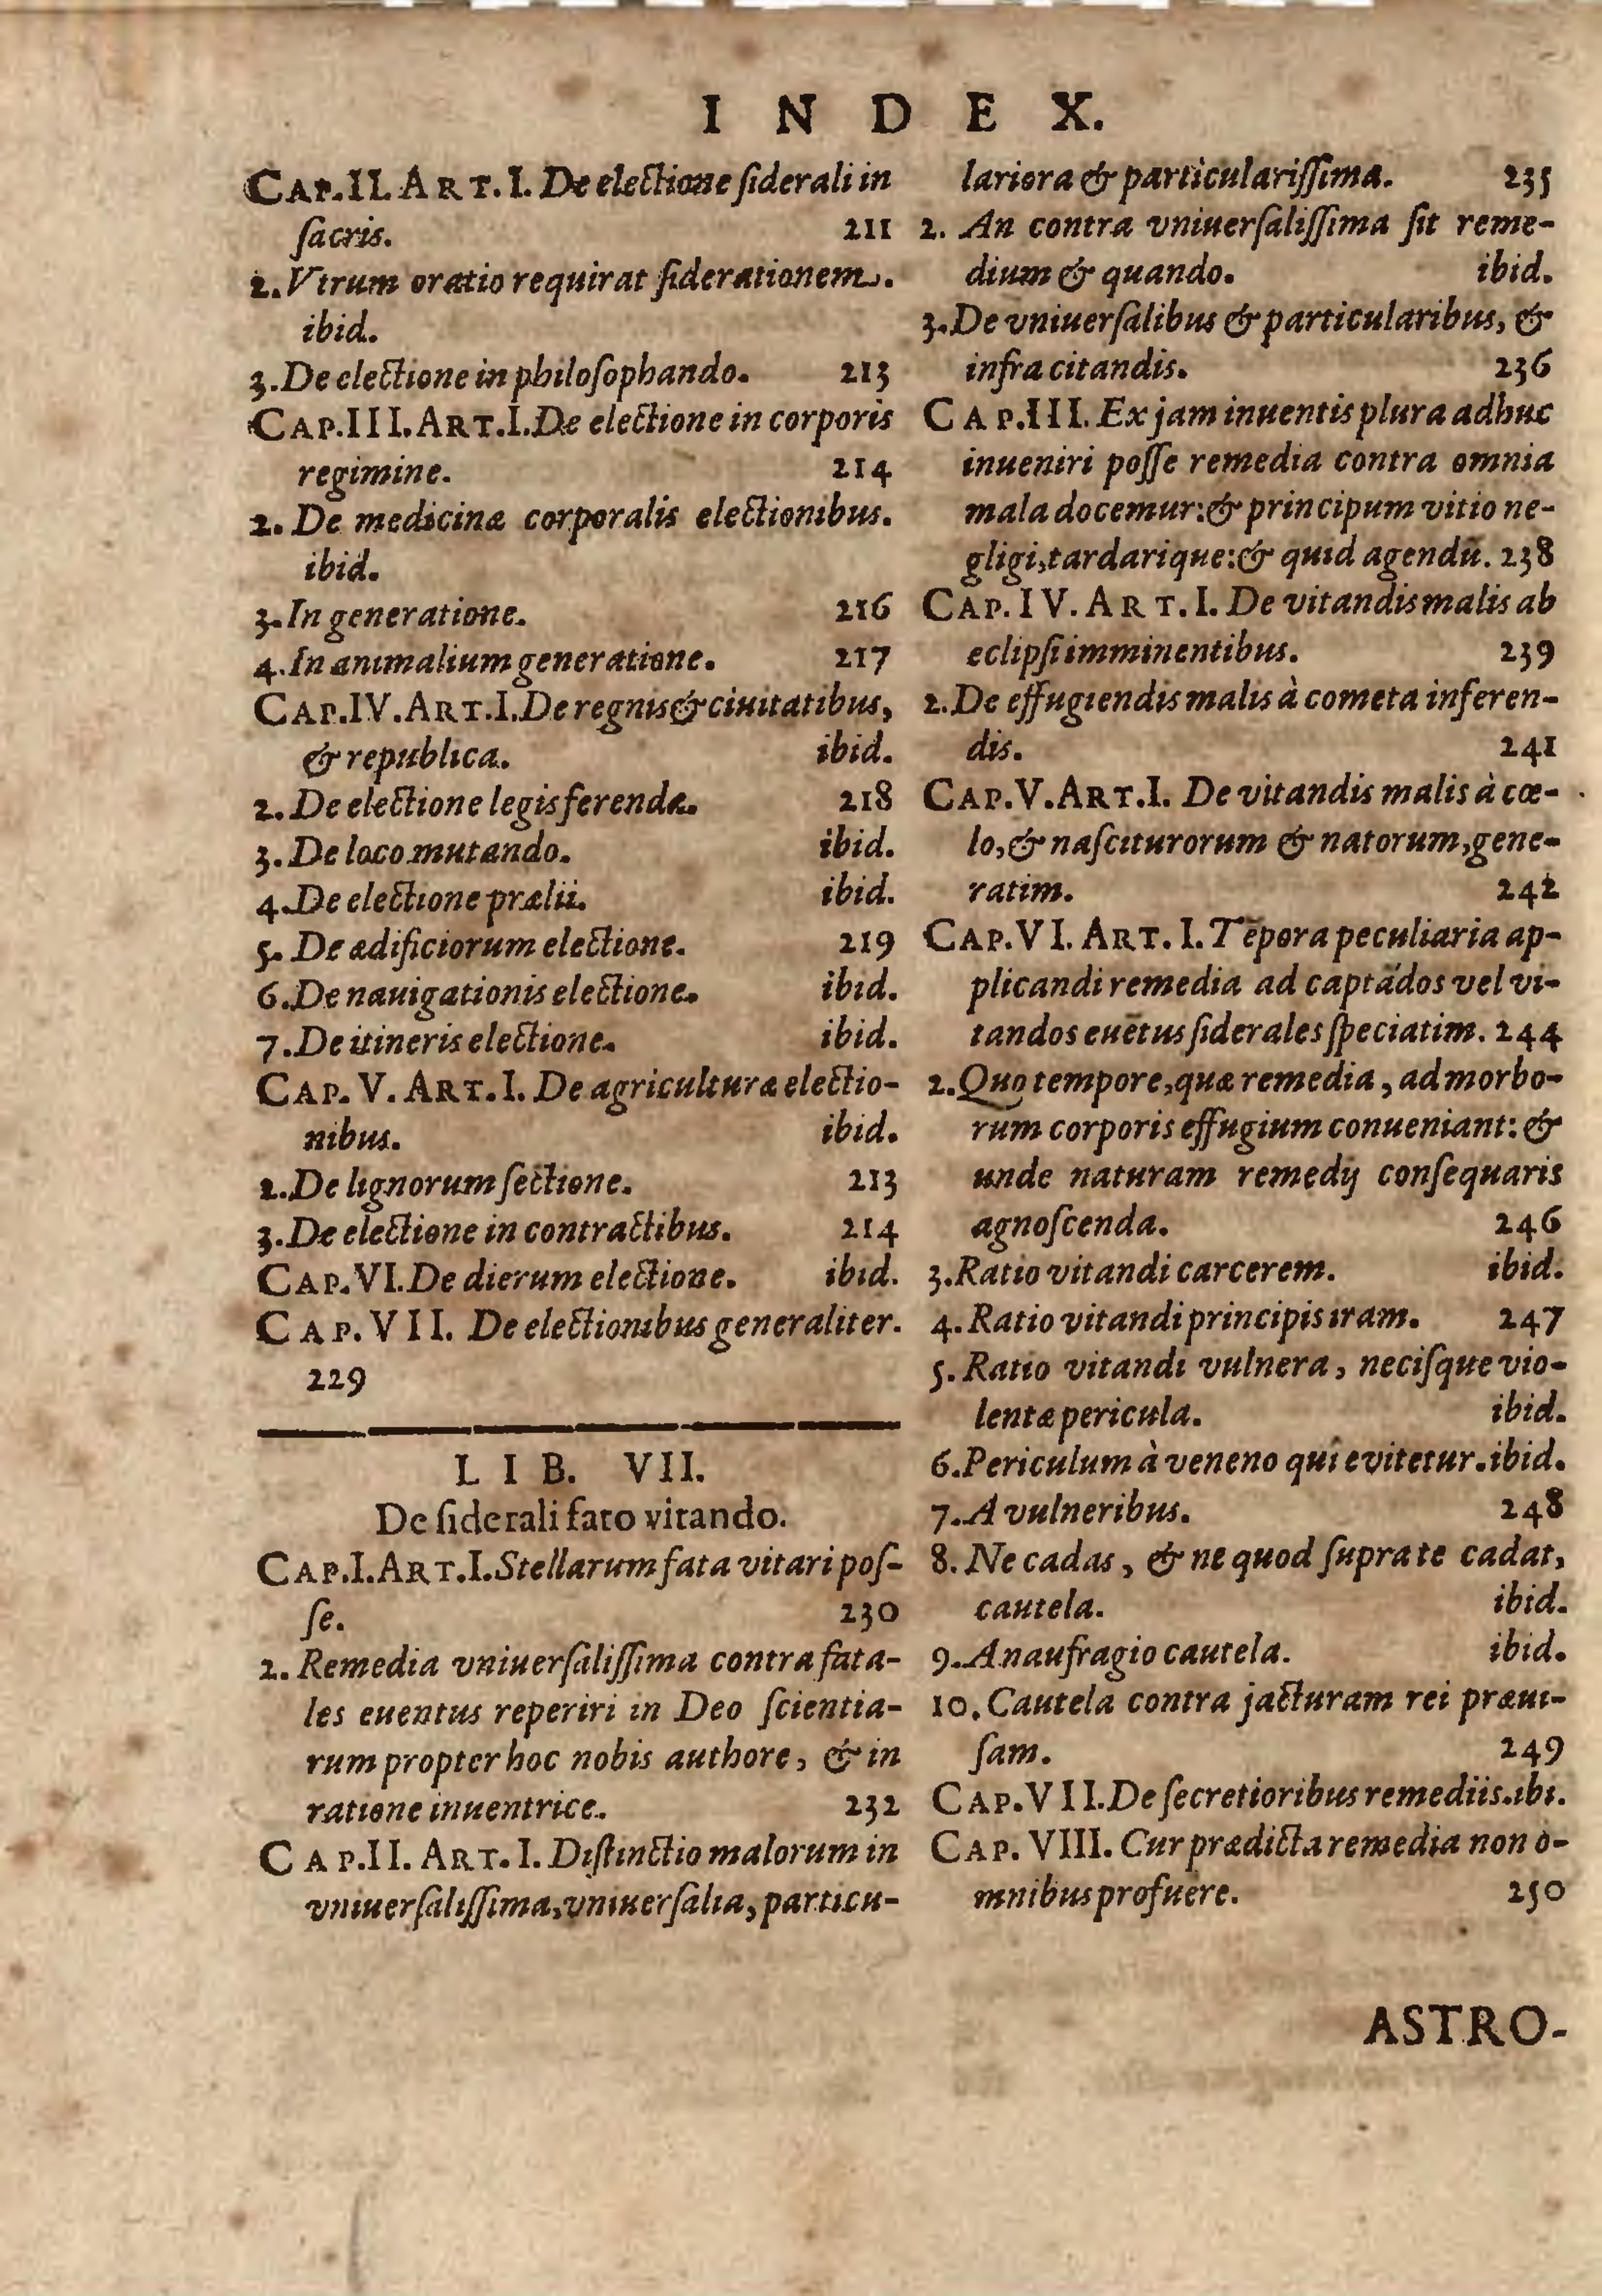 INDEX.
CAP.II. ART.I. De electione ſiderali in
ſacris. 211
2. Vtrum oratio requirat ſiderationem.
ibid.
3. De electione in philoſophando. 213
CAP.III. ART.I. De electione in corporis
regimine. 214
2. De medicinæ corporalis electionibus.
ibid.
3. In generatione. 216
4. In animalium generatione. 217
CAP.IV. ART.I. De regnis & ciuitatibus,
& republica. ibid.
2. De electione legis ferendæ. 218
3. De loco mutando. ibid.
4. De electione prælii. ibid.
5. De ædificiorum electione. 219
6. De nauigationis electione. ibid.
7. De itineris electione. ibid.
CAP. V. ART.I. De agriculturæ electio-
nibus. ibid.
2. De lignorum ſectione. 213
3. De electione in contractibus. 214
CAP.VI. De dierum electione. ibid.
CAP. VII. De electionibus generaliter.
229
LIB. VII.
De ſiderali fato vitando.
CAP.I. ART.I. Stellarum fata vitari poſ-
ſe. 230
2. Remedia vniuerſaliſſima contra fata-
les euentus reperiri in Deo ſcientia-
rum propter hoc nobis authore, & in
ratione inuentrice. 232
CAP.II. ART.I. Diſtinctio malorum in
vniuerſaliſſima, vniuerſalia, particu-
lariora & particulariſſima. 235
2. An contra vniuerſaliſſima ſit reme-
dium & quando. ibid.
3. De vniuerſalibus & particularibus, &
infra citandis. 236
CAP.III. Ex jam inuentis plura adhuc
inueniri poſſe remedia contra omnia
mala docemur: & principum vitio ne-
gligi, tardarique: & quid agendū. 238
CAP. IV. ART.I. De vitandis malis ab
eclipſi imminentibus. 239
2. De effugiendis malis à cometa inferen-
dis. 241
CAP.V. ART.I. De vitandis malis à cœ-
lo, & naſciturorum & natorum, gene-
ratim. 242
CAP.VI. ART.I. Tēpora peculiaria ap-
plicandi remedia ad captādos vel vi-
tandos euētus ſiderales ſpeciatim. 244
2. Quo tempore, quæ remedia, ad morbo-
rum corporis effugium conueniant: &
unde naturam remedij conſequaris
agnoſcenda. 246
3. Ratio vitandi carcerem. ibid.
4. Ratio vitandi principis iram. 247
5. Ratio vitandi vulnera, neciſque vio-
lentæ pericula. ibid.
6. Periculum à veneno quî evitetur. ibid.
7. A vulneribus. 248
8. Ne cadas, & ne quod ſupra te cadat,
cautela. ibid.
9. A naufragio cautela. ibid.
10. Cautela contra jacturam rei præui-
ſam. 249
CAP.VII. De ſecretioribus remediis. ibi.
CAP. VIII. Cur prædicta remedia non o-
mnibus profuere. 250
ASTRO-